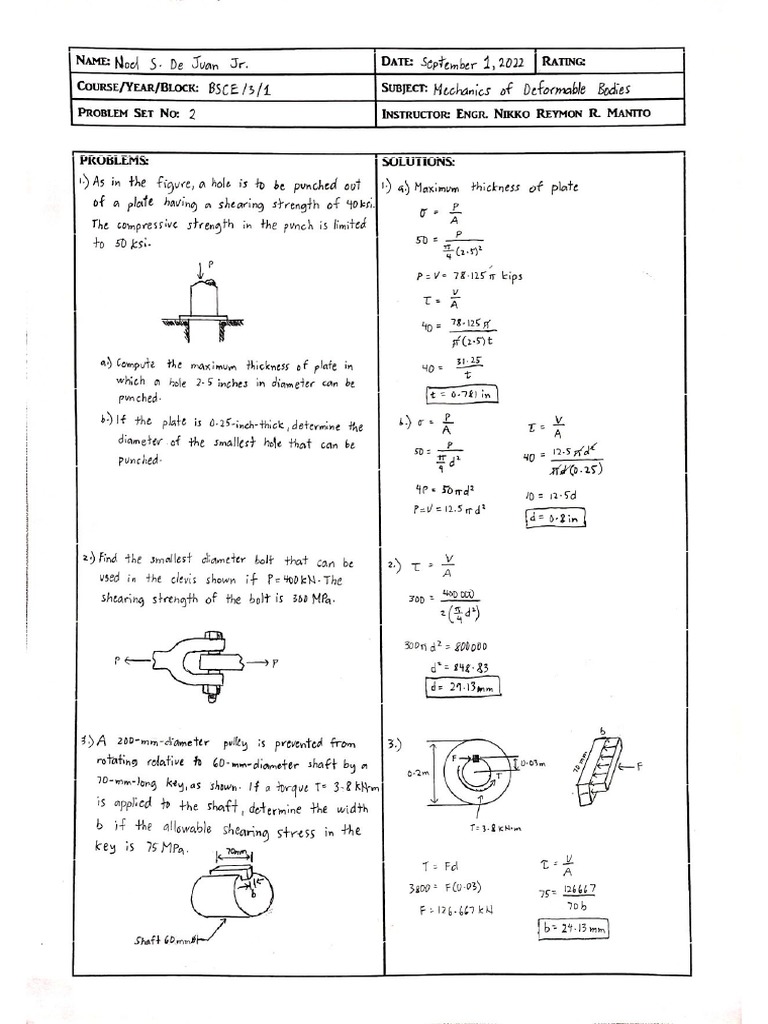 NAME: Noel S. De Juan Jr.
DATE: September 1, 2022
RATING:
COURSE/YEAR/BLOCK: BSCE/3/1
SUBJECT: Mechanics of Deformable Bodies
PROBLEM SET NO: 2
INSTRUCTOR: ENGR. NIKKO REYMON R. MANITO
PROBLEMS:
1.) As in the figure, a hole is to be punched out
of a plate having a shearing strength of 40 ksi.
The compressive strength in the punch is limited
to 50 ksi.
P
a.) Compute the maximum thickness of plate in
which a hole 2.5 inches in diameter can be
punched.
b.) If the plate is 0.25-inch-thick, determine the
diameter of the smallest hole that can be
punched.
2.) Find the smallest diameter bolt that can be
used in the clevis shown if P = 400 kN. The
shearing strength of the bolt is 300 MPa.
P P
3.) A 200-mm-diameter pulley is prevented from
rotating relative to 60-mm-diameter shaft by a
70-mm-long key, as shown. If a torque T = 3.8 kN·m
is applied to the shaft, determine the width
b if the allowable shearing stress in the
key is 75 MPa.
70mm
b
Shaft 60 mmϕ
SOLUTIONS:
1.) a.) Maximum thickness of plate
σ = P/A
50 = P/(π/4 (2.5)²)
P = V = 78.125 π kips
τ = V/A
40 = 78.125 π/(π(2.5)t)
40 = 31.25/t
t = 0.781 in
b.) σ = P/A
50 = P/(π/4 d²)
4P = 50πd²
P = V = 12.5 πd²
τ = V/A
40 = 12.5 πd²/(πd(0.25))
10 = 12.5d
d = 0.8 in
2.) τ = V/A
300 = 400 000/(2(π/4 d²))
300π d² = 800000
d² = 848.83
d = 29.13 mm
3.)
0.2m
F
T
0.03m
T = 3.8 kN·m
b
70 mm
F
T = Fd
3800 = F(0.03)
F = 126.667 kN
τ = V/A
75 = 126667/70b
b = 24.13 mm